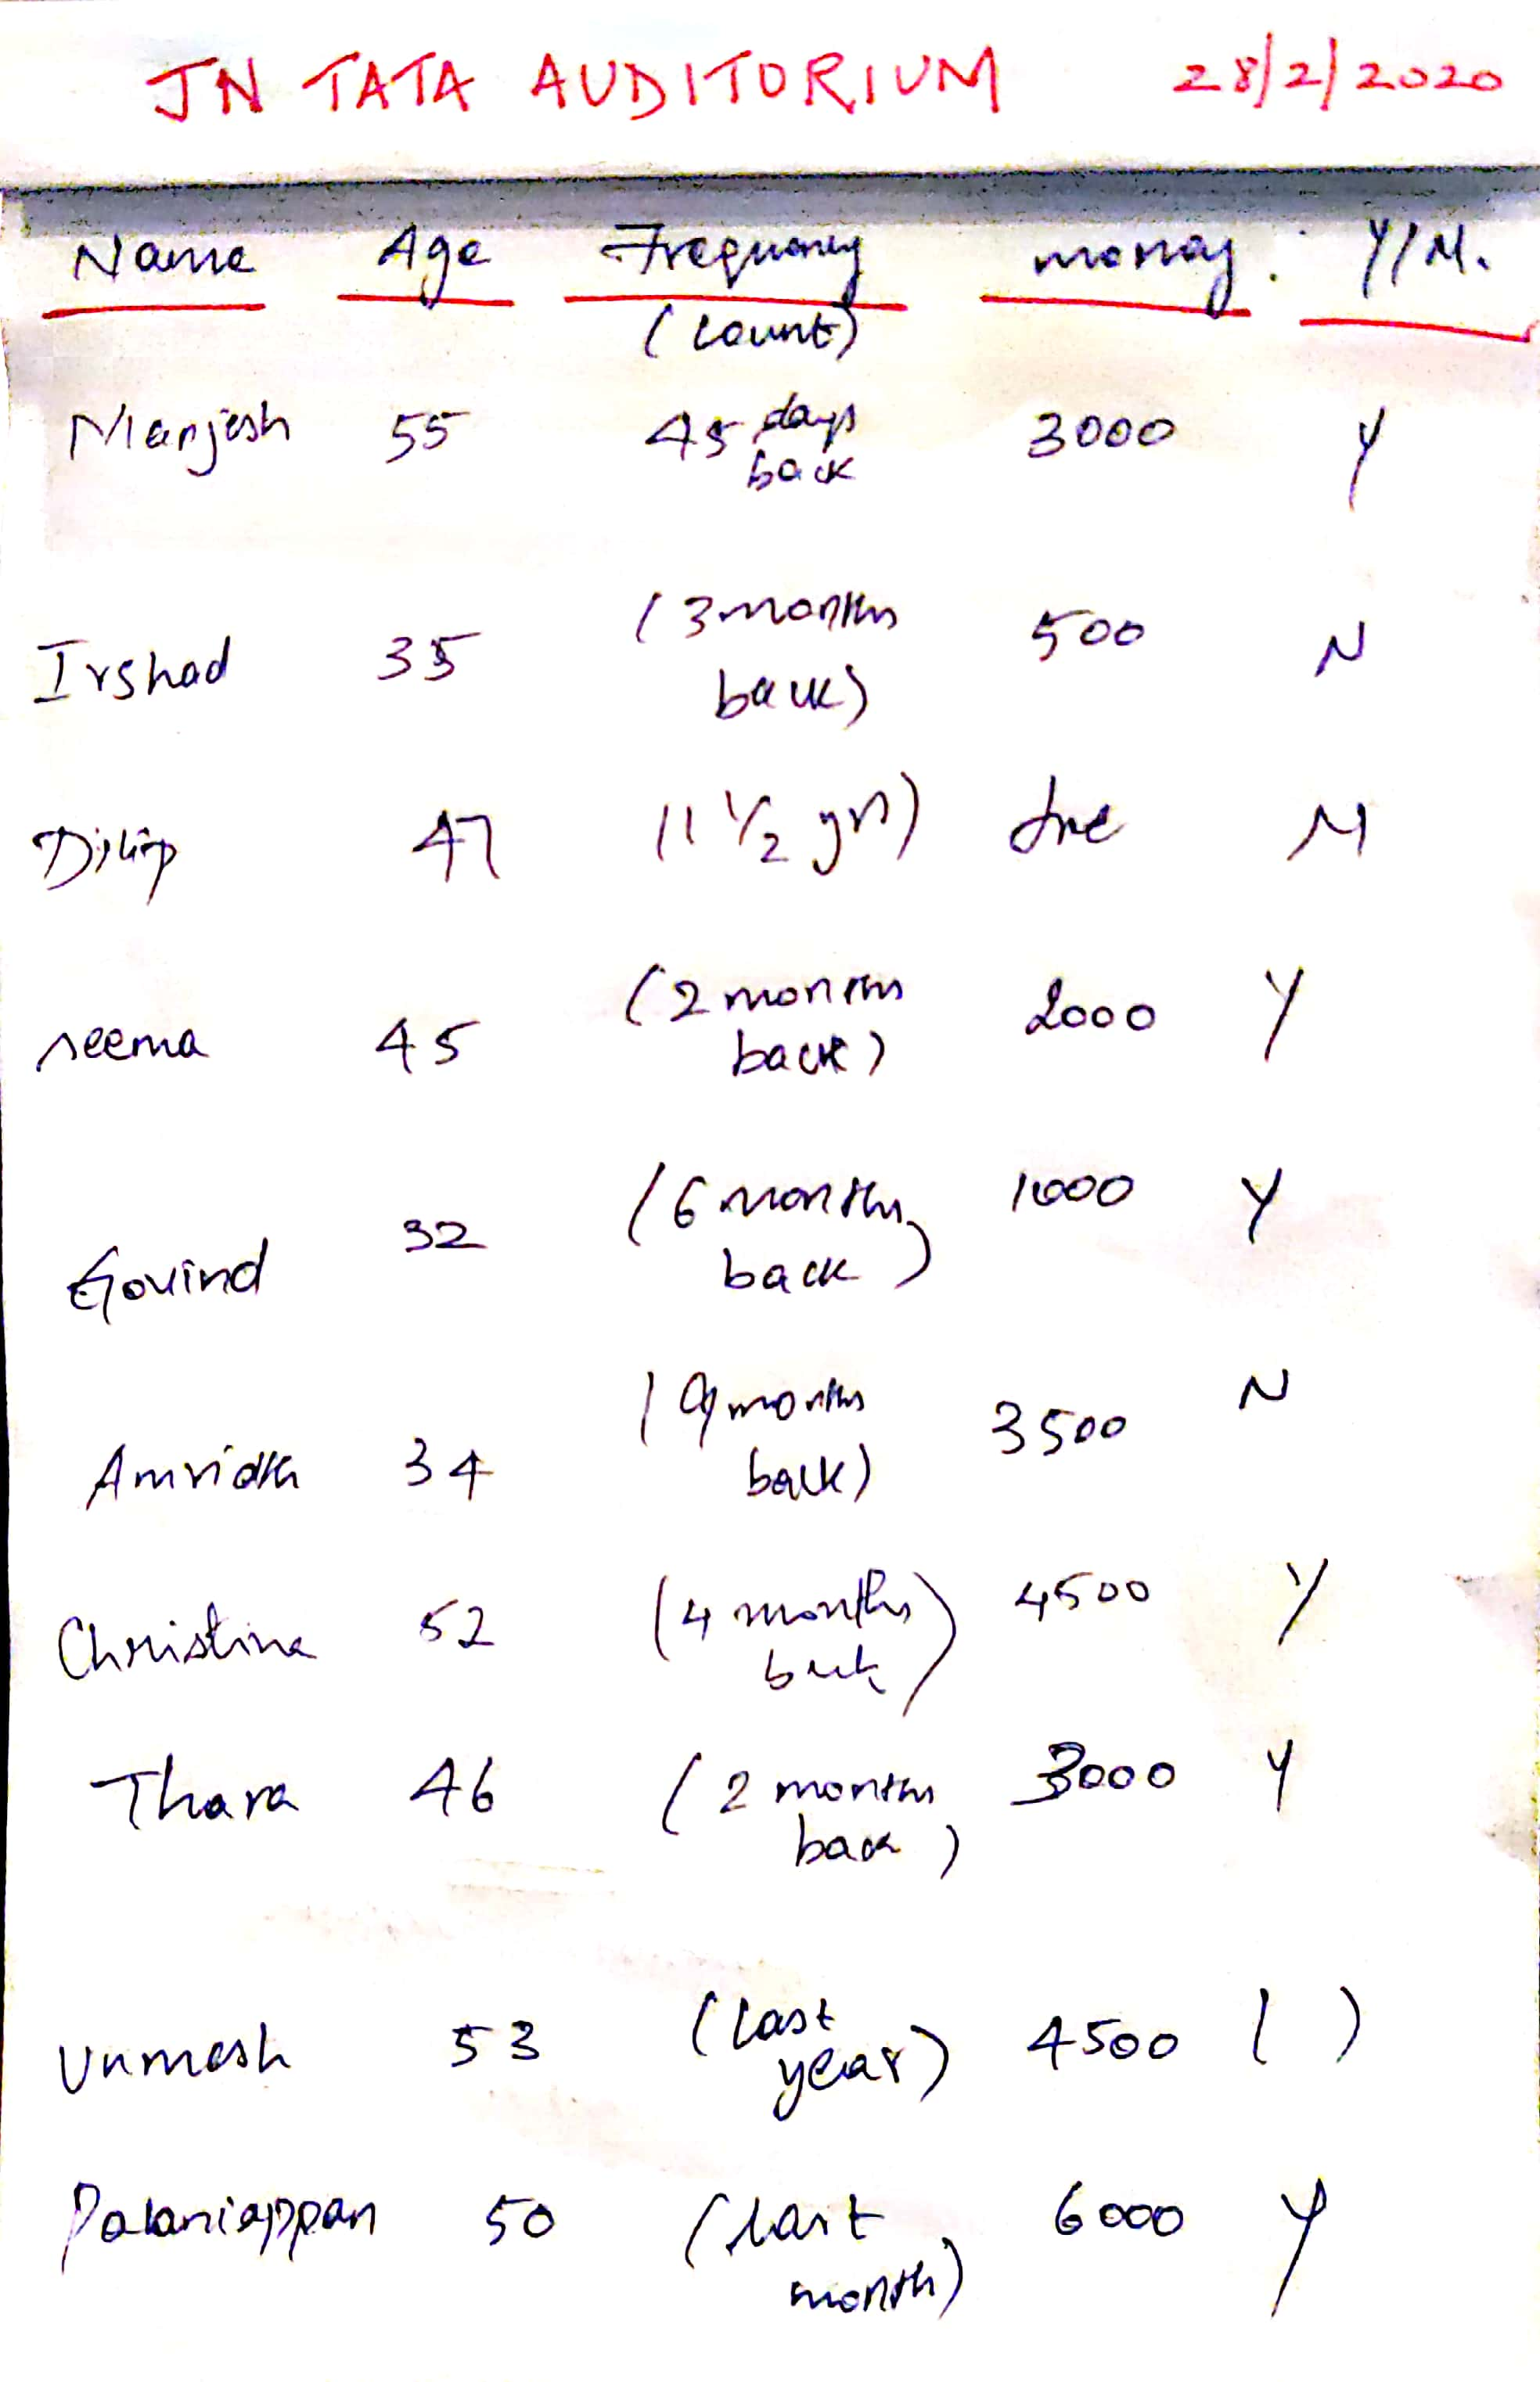 JN TATA AUDITORIUM 28/2/2020
Name Age Frequency money. Y/N.
(count)
Manjesh 55 45 days back 3000 Y
Irshad 35 (3 months back) 500 N
Dilip 47 (1 1/2 yrs) N
seema 45 (2 months back) 2000 Y
Govind 32 (6 months back) 1000 Y
Amridh 34 (9 months back) 3500 N
Christina 52 (4 months back) 4500 Y
Thara 46 (2 months back) 3000 Y
Unmesh 53 (last year) 4500 ( )
Palaniappan 50 (last month) 6000 Y